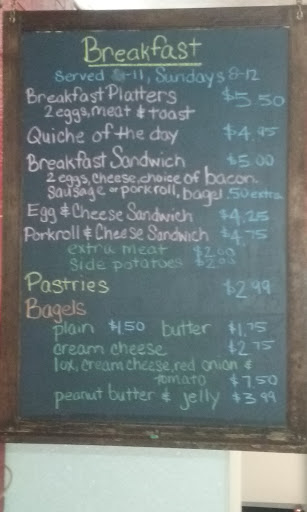 Breakfast
Served 8-11, Sundays 8-12
Breakfast Platters $5.50
2 eggs, meat & toast
Quiche of the day $4.95
Breakfast Sandwich $5.00
2 eggs, cheese, choice of bacon
sausage or porkroll, bagel .50 extra
Egg & Cheese Sandwich $4.25
Porkroll & Cheese Sandwich $4.75
extra meat $2.00
side potatoes $2.00
Pastries $2.99
Bagels
plain $1.50 butter $1.75
cream cheese $2.75
lox, cream cheese, red onion &
tomato $7.50
peanut butter & jelly $3.99